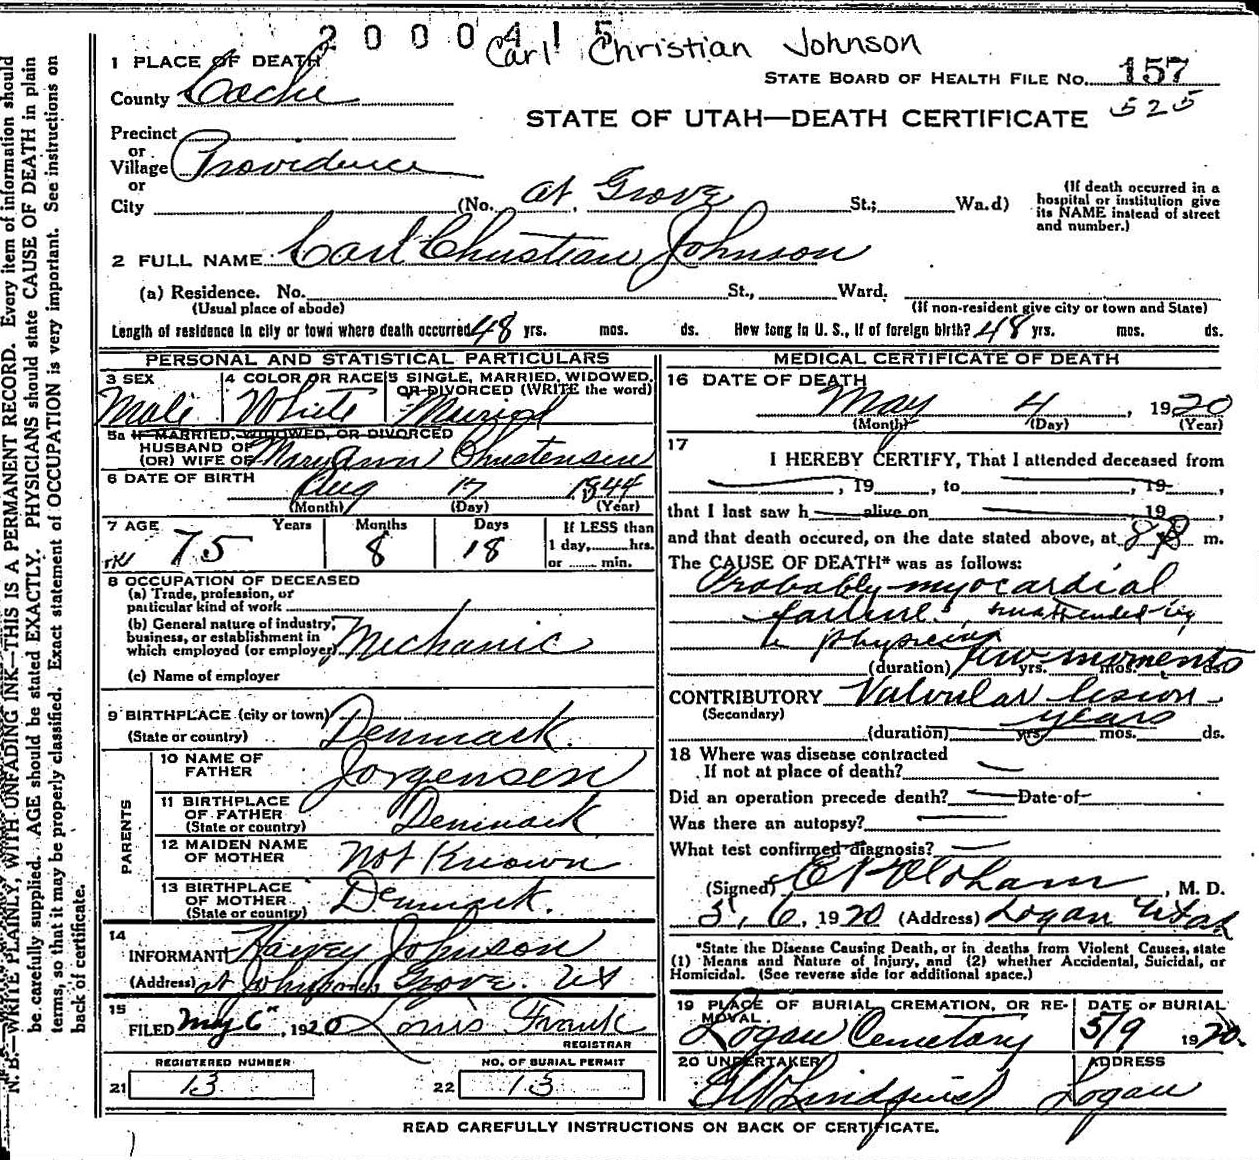 2000415
Carl Christian Johnson
1 PLACE OF DEATH
STATE BOARD OF HEALTH FILE No. 157
County Cache
525
STATE OF UTAH—DEATH CERTIFICATE
Precinct
or
Village Providence
or
City (No. at Grove St.; Wa.d)
(If death occurred in a
hospital or institution give
its NAME instead of street
and number.)
2 FULL NAME Carl Christian Johnson
(a) Residence. No. St., Ward.
(Usual place of abode) (If non-resident give city or town and State)
Length of residence in city or town where death occurred 48 yrs. mos. ds. How long in U. S., if of foreign birth? 48 yrs. mos. ds.
PERSONAL AND STATISTICAL PARTICULARS
3 SEX 4 COLOR OR RACE 5 SINGLE, MARRIED, WIDOWED,
OR DIVORCED (WRITE the word)
Male White Married
5a IF MARRIED, WIDOWED, OR DIVORCED
HUSBAND OF
(OR) WIFE OF Mary Ann Christensen
6 DATE OF BIRTH Aug 17 1844
(Month) (Day) (Year)
7 AGE Years Months Days If LESS than
75 8 18 1 day,......hrs.
or ...... min.
8 OCCUPATION OF DECEASED
(a) Trade, profession, or
particular kind of work
(b) General nature of industry,
business, or establishment in
which employed (or employer) Mechanic
(c) Name of employer
9 BIRTHPLACE (city or town)
(State or country) Denmark
PARENTS
10 NAME OF
FATHER Jorgensen
11 BIRTHPLACE
OF FATHER
(State or country) Denmark
12 MAIDEN NAME
OF MOTHER Not Known
13 BIRTHPLACE
OF MOTHER
(State or country) Denmark.
14
INFORMANT Harvey Johnson
(Address) at Grove. Ut
15
FILED May 6", 1920 Louis Frank
REGISTRAR
REGISTERED NUMBER NO. OF BURIAL PERMIT
21 13 22 13
MEDICAL CERTIFICATE OF DEATH
16 DATE OF DEATH
May 4, 1920
(Month) (Day) (Year)
17
I HEREBY CERTIFY, That I attended deceased from
, 19 , to , 19 ,
that I last saw h alive on , 19 ,
and that death occured, on the date stated above, at 8 P m.
The CAUSE OF DEATH* was as follows:
Probably myocardial
failure. unattended by
a physician
(duration) few moments yrs. mos. ds.
CONTRIBUTORY Valvular lesion
(Secondary) years
(duration) yrs. mos. ds.
18 Where was disease contracted
If not at place of death?
Did an operation precede death? Date of
Was there an autopsy?
What test confirmed diagnosis?
(Signed) Oldham, M. D.
5, 6, 1920 (Address) Logan Utah
*State the Disease Causing Death, or in deaths from Violent Causes, state
(1) Means and Nature of Injury, and (2) whether Accidental, Suicidal, or
Homicidal. (See reverse side for additional space.)
19 PLACE OF BURIAL, CREMATION, OR RE-
MOVAL. DATE OF BURIAL
Logan Cemetary 5/9 1920.
20 UNDERTAKER ADDRESS
Lindquist Logan
READ CAREFULLY INSTRUCTIONS ON BACK OF CERTIFICATE.
N. B.—WRITE PLAINLY, WITH UNFADING INK—THIS IS A PERMANENT RECORD. Every item of information should
be carefully supplied. AGE should be stated EXACTLY. PHYSICIANS should state CAUSE OF DEATH in plain
terms, so that it may be properly classified. Exact statement of OCCUPATION is very important. See instructions on
back of certificate.